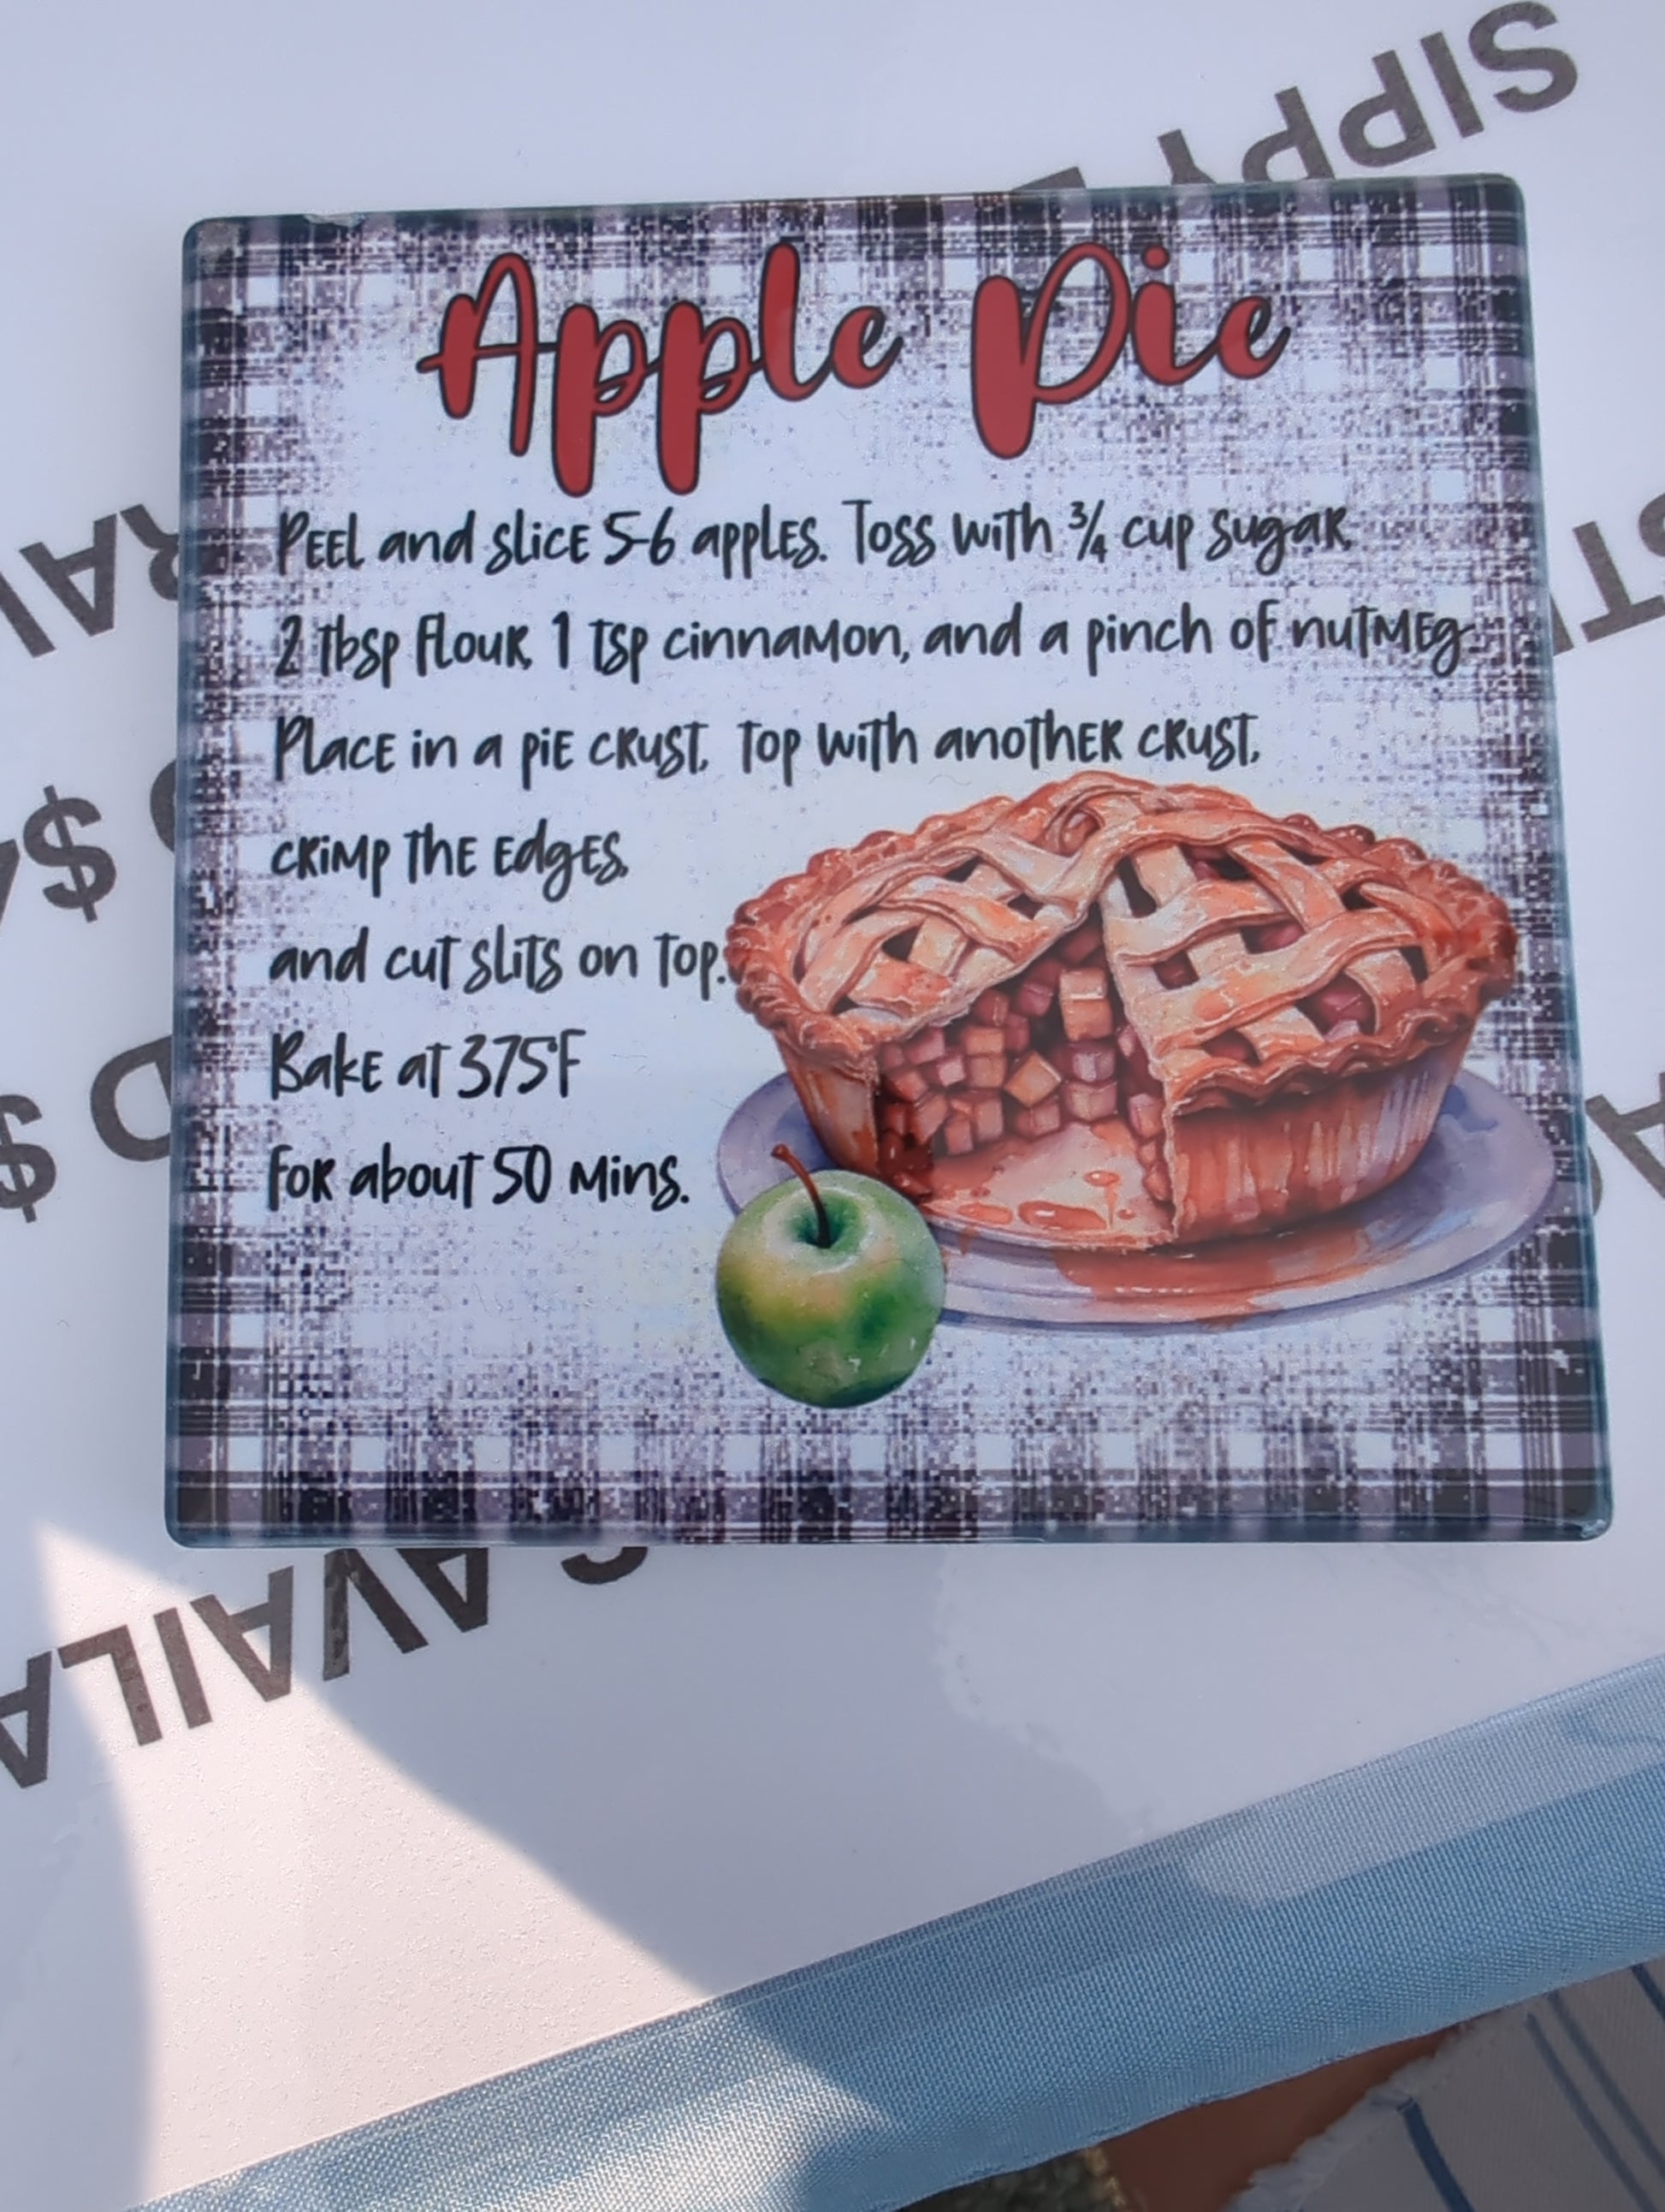 SIPPY
Apple Pie
Peel and slice 5-6 apples. Toss with ¾ cup sugar,
2 tbsp flour, 1 tsp cinnamon, and a pinch of nutmeg.
Place in a pie crust, top with another crust,
crimp the edges,
and cut slits on top.
Bake at 375°F
for about 50 mins.